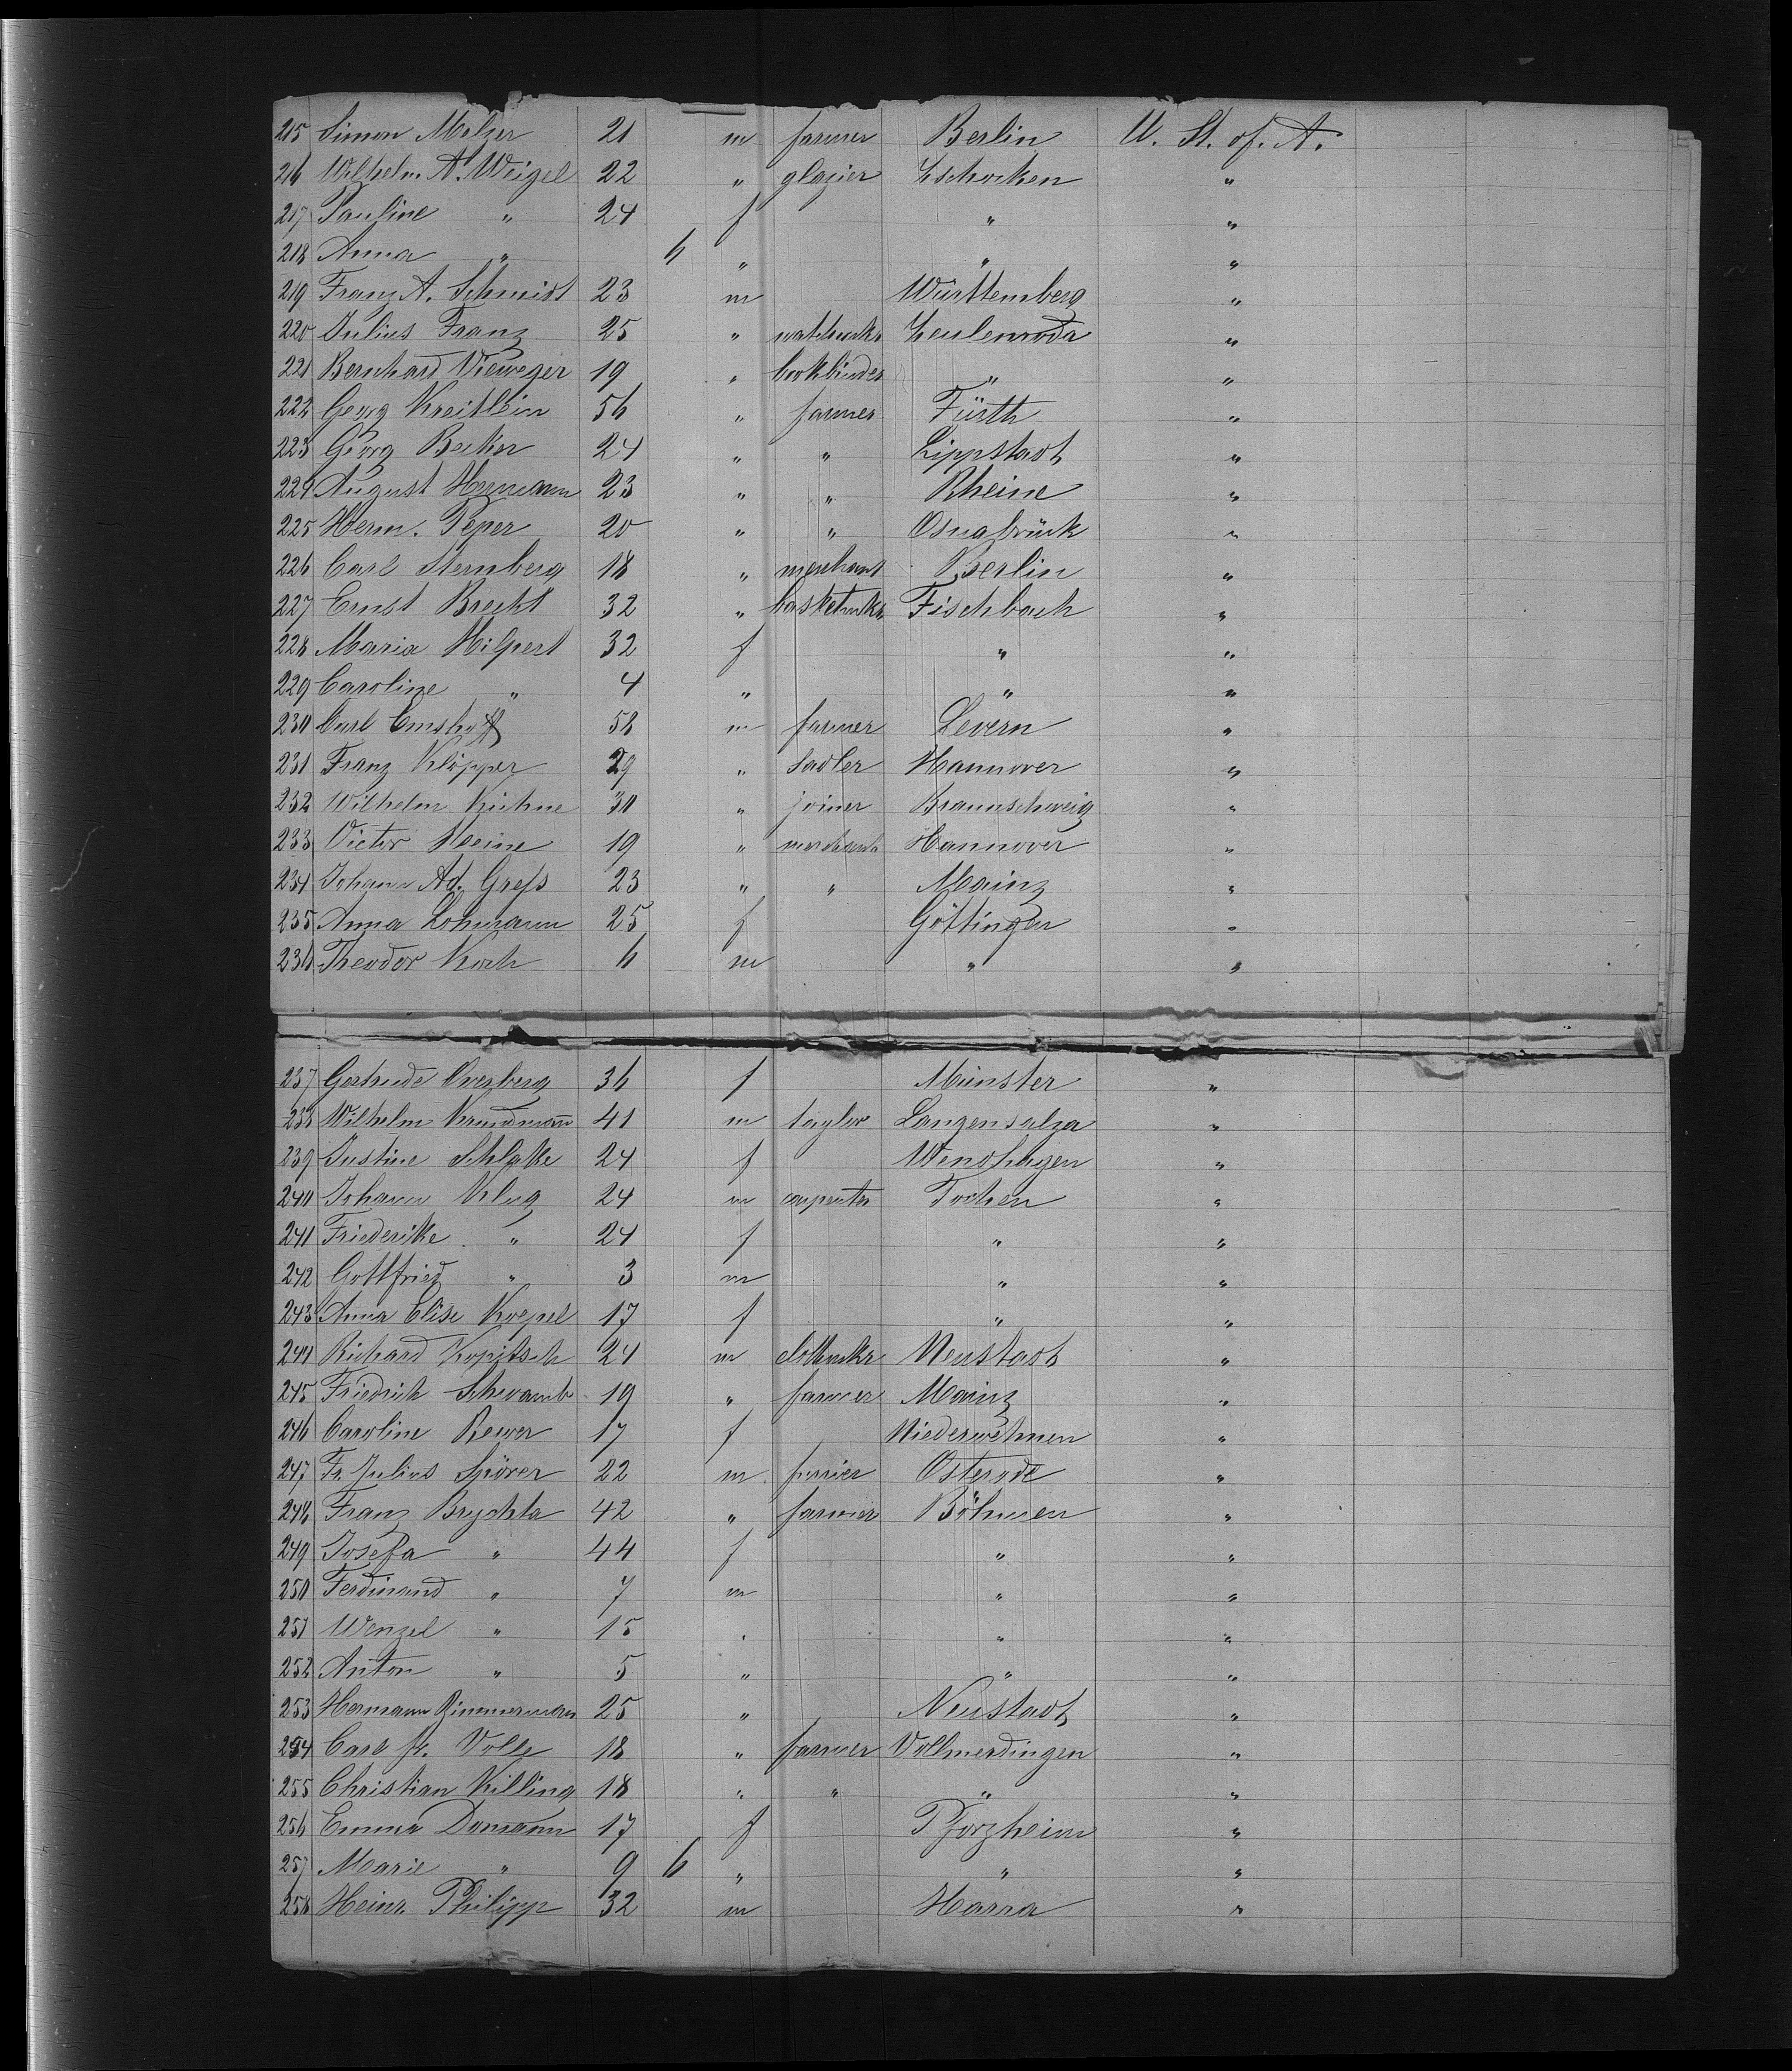 215 Simon Melzer 21 m farmer Berlin U. St. of. A.
216 Wilhelm A. Weigel 22 " glazier Zschocken "
217 Pauline " 24 f " "
218 Anna " 6 " " "
219 Franz A. Schmidt 23 m Württemberg "
220 Julius Franz 25 " watchmkr Zeulenroda "
221 Bernhard Vieweger 19 " bookbinder " "
222 Georg Kreitlein 56 " farmer Fürth "
223 Georg Becker 24 " " Lippstadt "
224 August Hermann 23 " " Rheine "
225 Herm. Peper 20 " " Osnabrück "
226 Carl Sternberg 18 " merchant Berlin "
227 Ernst Brecht 32 " basketmkr Fischbach "
228 Maria Hilpert 32 f " "
229 Caroline " 4 " " "
230 Carl Emshoff 58 m farmer Levern "
231 Franz Klöpper 29 " sadler Hannover "
232 Wilhelm Kuhne 30 " joiner Braunschweig "
233 Victor Heine 19 " merchant Hannover "
234 Johann Ad. Gress 23 " " Mainz "
235 Anna Lohmann 25 f Göttingen "
236 Theodor Koch 6 m " "
237 Gertrude Overberg 36 f Münster "
238 Wilhelm 41 m taylor Langensalza "
239 Justine Schlake 24 f Wendhagen "
240 Johann Klug 24 m carpenter Tochen "
241 Friederike " 24 f " "
242 Gottfried " 3 m " "
243 Anna Elise Koepel 17 f " "
244 Richard Kopitsch 24 m clothmkr Neustadt "
245 Friedrich Schwamb 19 " farmer Mainz "
246 Caroline Rewer 17 f Niederwehnen "
247 Fr. Julius Spörer 22 m furrier Osterode "
248 Franz Brychta 42 " farmer Böhmen "
249 Josefa " 44 f " "
250 Ferdinand " 7 m " "
251 Wenzel " 15 " " "
252 Anton " 5 " " "
253 Hermann Zimmermann 25 " Neustadt "
254 Carl fr. Volle 18 " farmer Vollmerdingen "
255 Christian Killing 18 " " " "
256 Emma Domann 17 f Pforzheim "
257 Marie " 9 6 " " "
258 Heinr. Philipp 32 m Harra "